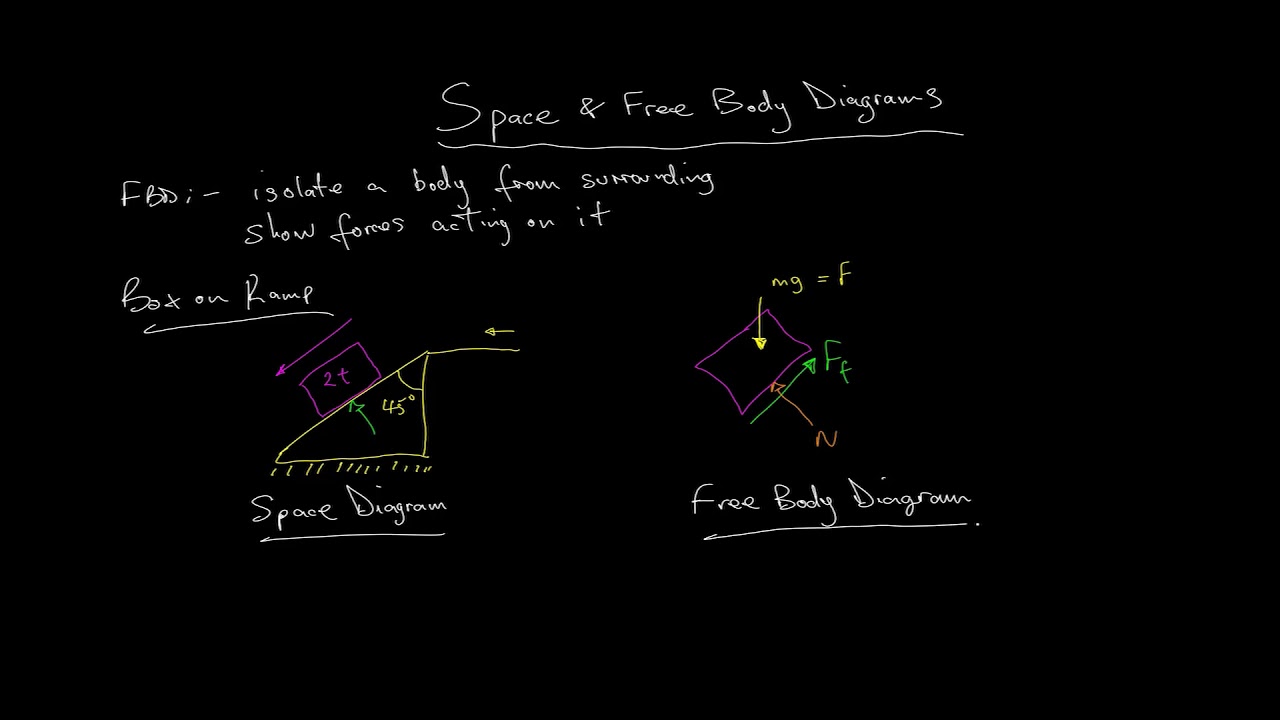 Space & Free Body Diagrams
FBD:- isolate a body from surrounding
show forces acting on it
Box on Ramp
mg = F
2t
45°
Ff
N
Space Diagram
Free Body Diagram.